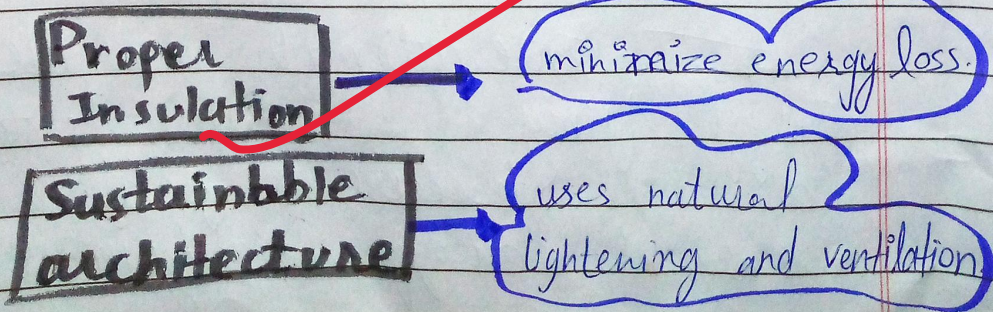 Proper
Insulation
minimaize energy loss.
Sustainbble
architecture
uses natural
lightening and ventilation